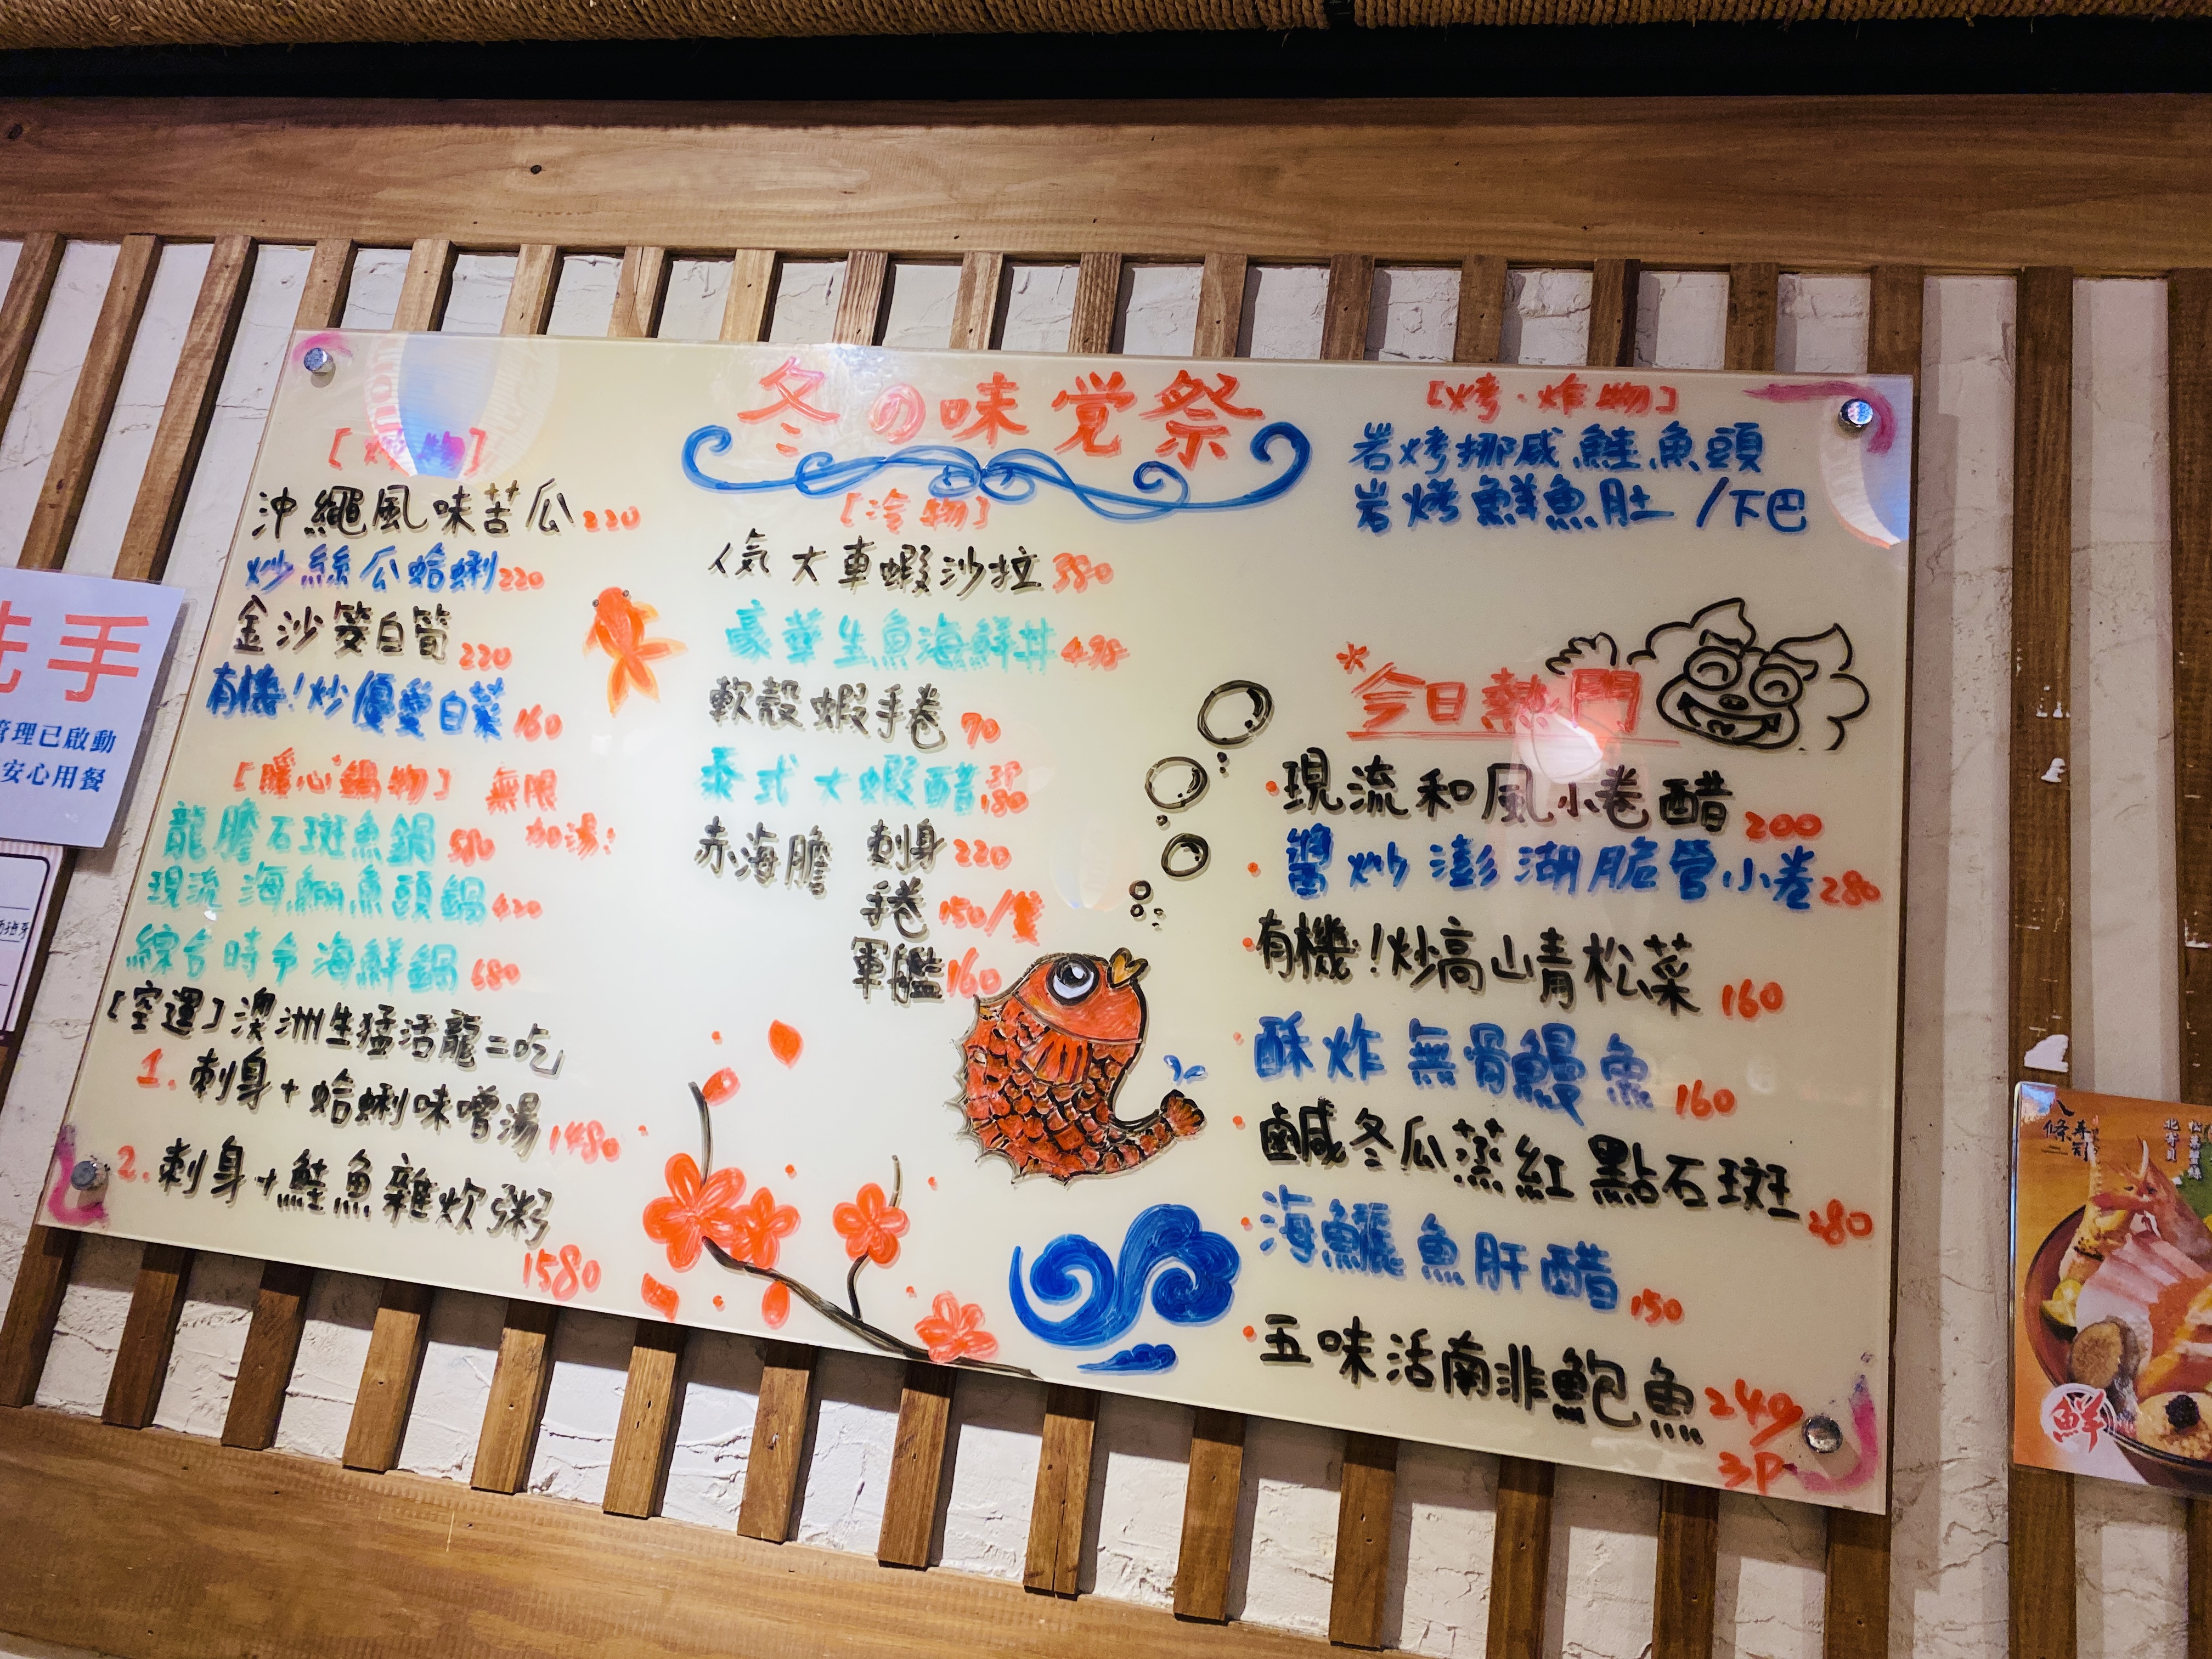 冬の味覚祭
[炒物]
沖繩風味苦瓜220
炒絲瓜蛤蜊220
金沙筊白筍220
有機!炒優愛白菜160
[暖心鍋物] 無限
加湯!
龍膽石斑魚鍋580
現流海鲡魚頭鍋420
綜合時令海鮮鍋680
[空運]澳洲生猛活龍二吃
1. 刺身+蛤蜊味噌湯1480
2. 刺身+鮭魚雜炊粥
1580
[冷物]
人気大車蝦沙拉380
豪華生魚海鮮丼498
軟殼蝦手卷70
泰式大蝦醋3P
180
赤海膽 刺身220
手卷150/隻
軍艦160
[烤·炸物]
岩烤挪威鮭魚頭
岩烤鮮魚肚/下巴
*今日熱門
·現流和風小卷醋200
·醬炒澎湖脆管小卷280
·有機!炒高山青松菜160
·酥炸無骨鰻魚160
·鹹冬瓜蒸紅點石斑280
·海鱺魚肝醋150
·五味活南非鮑魚249
3P
洗手
管理已啟動
安心用餐
西班牙
八條壽司
松葉蟹絲
北寄貝
鮮